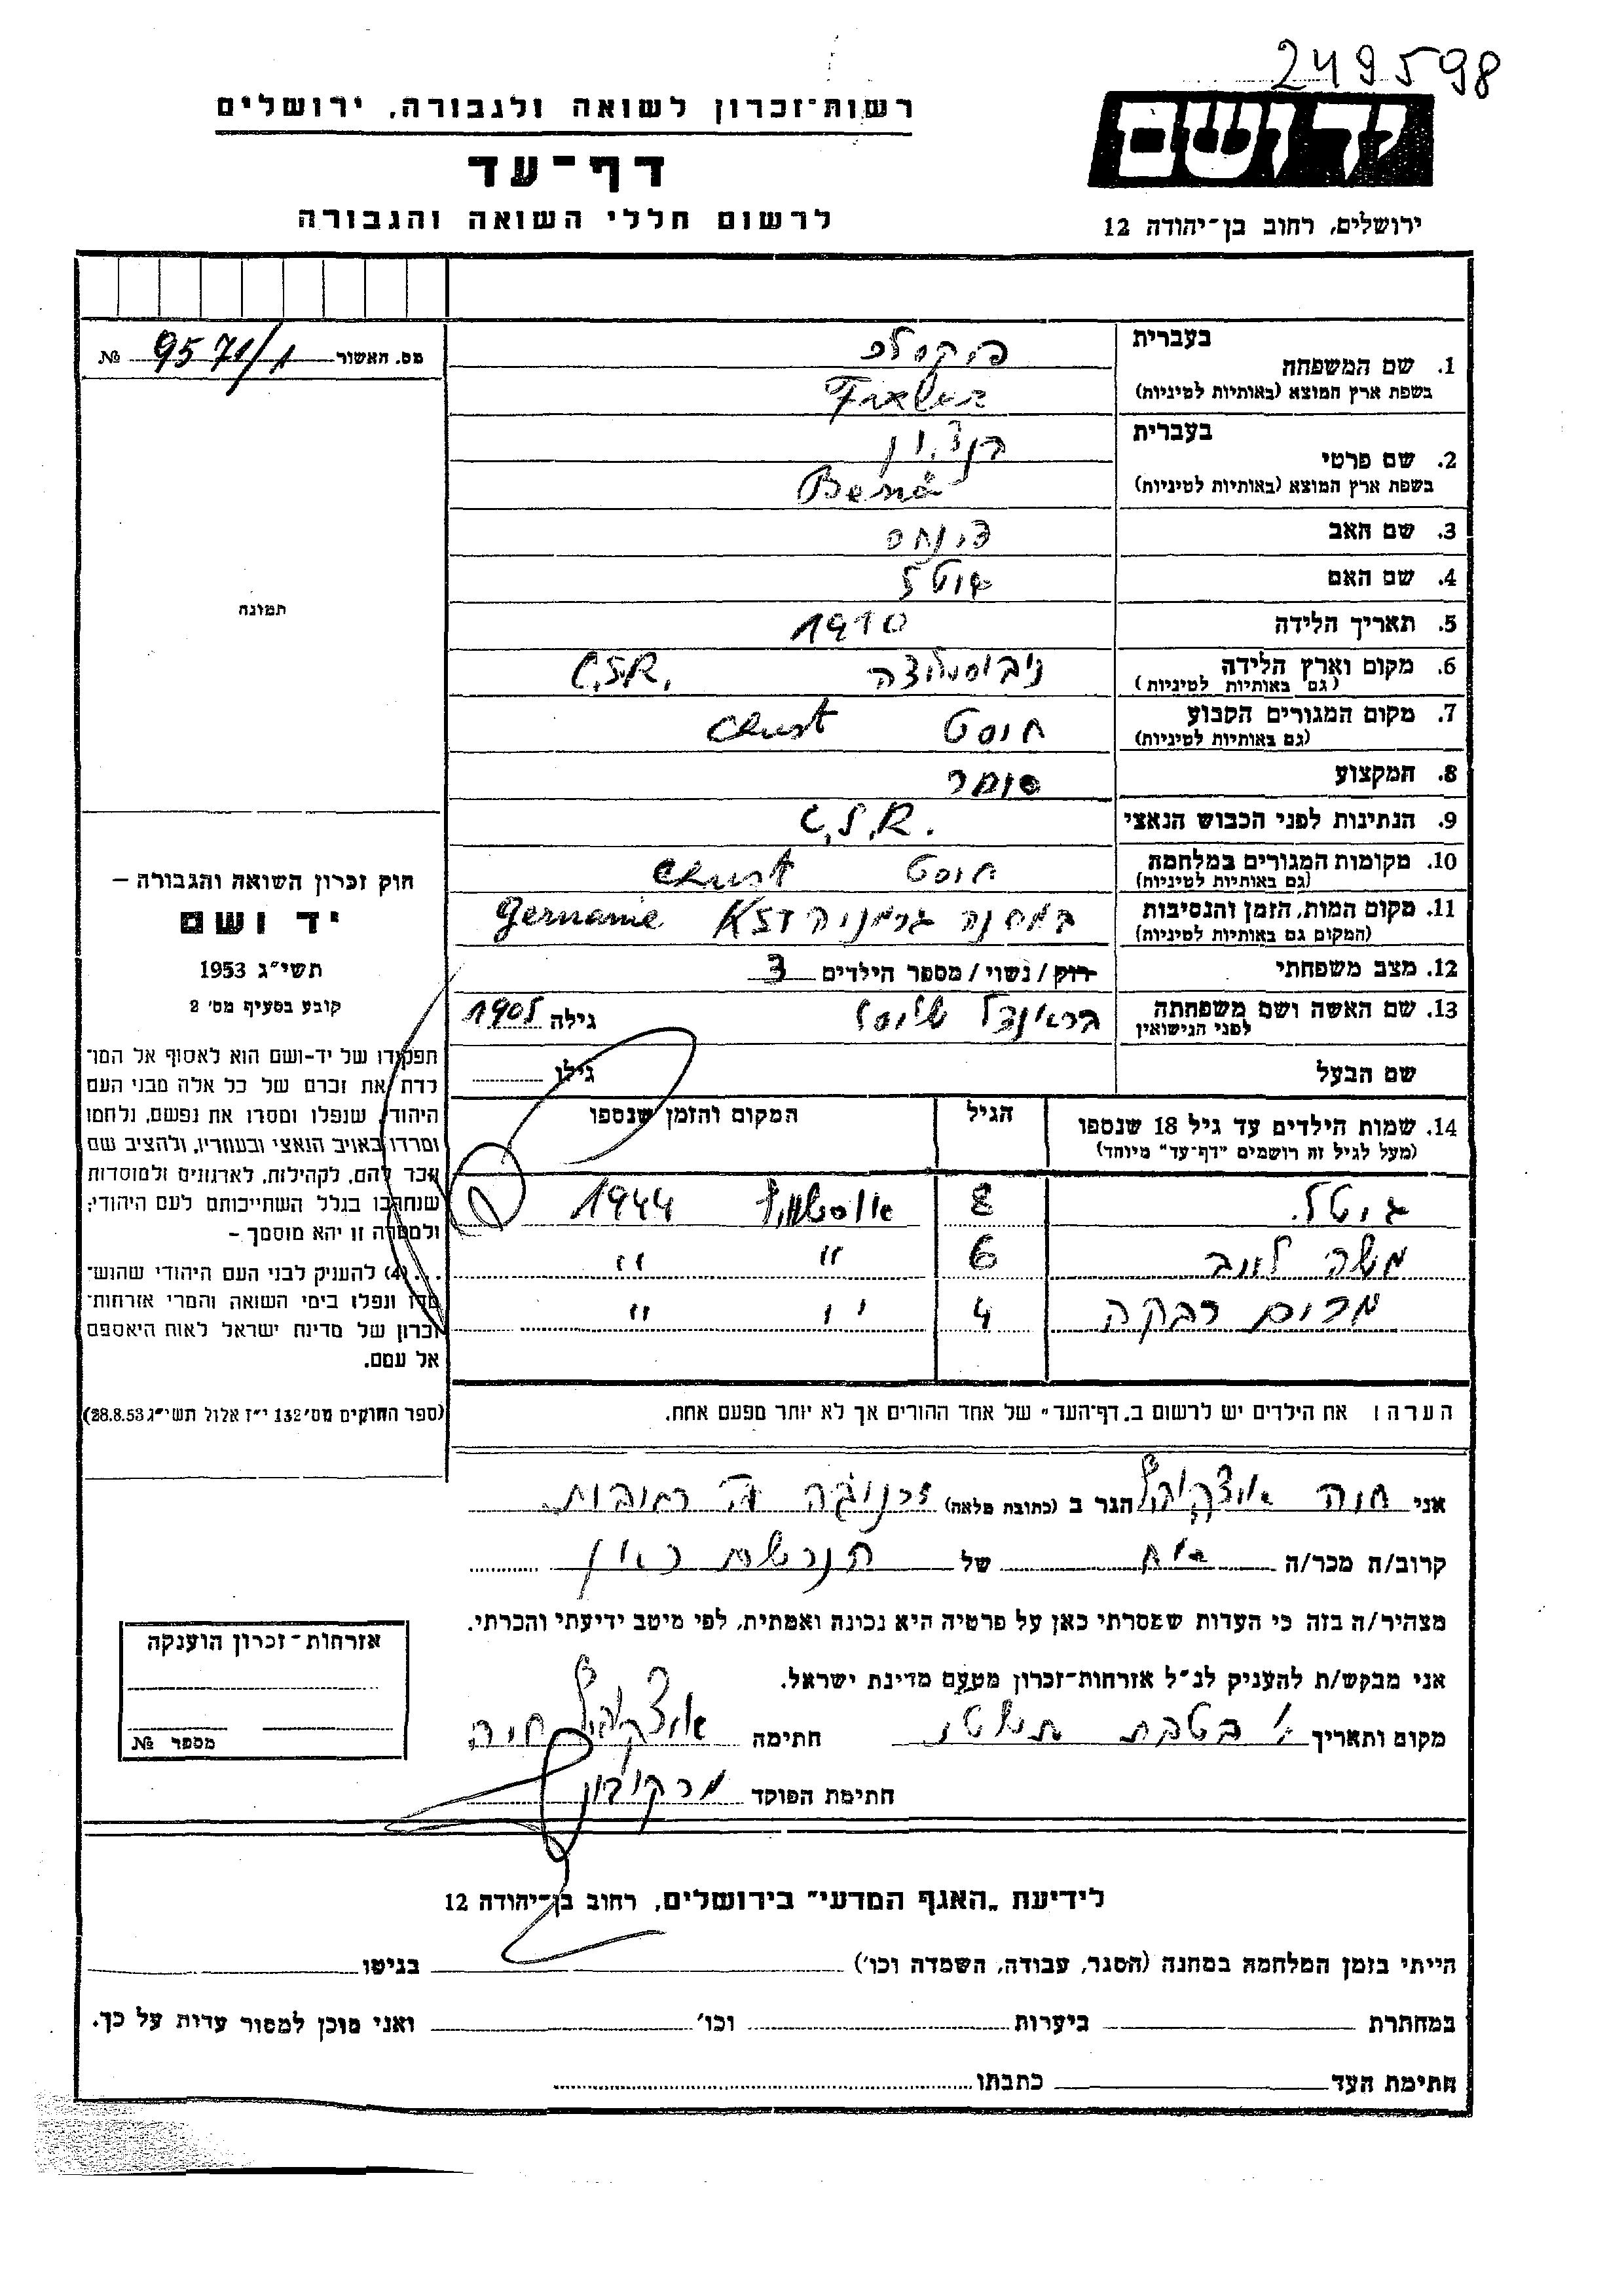 249598
רשות-זכרון לשואה ולגבורה, ירושלים
יד ושם
דף-עד
לרשום חללי השואה והגבורה
ירושלים, רחוב בן-יהודה 12
מס. האשור 9571/1 №
בעברית
1. שם המשפחה
בשפת ארץ המוצא (באותיות לטיניות) Fixler
בעברית בנציון
2. שם פרטי
בשפת ארץ המוצא (באותיות לטיניות)
3. שם האב פינחס
4. שם האם
5. תאריך הלידה 1910
6. מקום וארץ הלידה C.S.R.
(גם באותיות לטיניות)
7. מקום המגורים הקבוע חוסט Chust
(גם באותיות לטיניות)
8. המקצוע סוחר
9. הנתינות לפני הכבוש הנאצי C.S.R.
10. מקומות המגורים במלחמה חוסט Chust
(גם באותיות לטיניות)
11. מקום המות, הזמן והנסיבות במחנה גרמניה germanie
(המקום גם באותיות לטיניות)
12. מצב משפחתי רוק / נשוי / מספר הילדים 3
13. שם האשה ושם משפחתה בריינדל גילה 1905
לפני הנישואין
שם הבעל גילו
14. שמות הילדים עד גיל 18 שנספו הגיל המקום והזמן שנספו
(מעל לגיל זה רושמים "דף-עד" מיוחד)
גיטל 8 אושוויץ 1944
משה לייב 6 " "
מרים רבקה 4 " "
הערה: את הילדים יש לרשום ב„דף-העד" של אחד ההורים אך לא יותר מפעם אחת.
תמונה
חוק זכרון השואה והגבורה –
יד ושם
תשי"ג 1953
קובע בסעיף מס' 2
תפקידו של יד-ושם הוא לאסוף אל המו־
לדת את זכרם של כל אלה מבני העם
היהודי, שנפלו ומסרו את נפשם, נלחמו
ומרדו באויב הנאצי ובעוזריו, ולהציב שם
וזכר להם, לקהילות, לארגונים ולמוסדות
שנחרבו בגלל השתייכותם לעם היהודי;
ולמטרה זו יהא מוסמך –
. . (4) להעניק לבני העם היהודי שהוש־
מדו ונפלו בימי השואה והמרי אזרחות־
זכרון של מדינת ישראל לאות היאספם
אל עמם.
(ספר החוקים מס' 132 י"ז אלול תשי"ג 28.8.53)
אני חוה איצקוביץ הגר ב (כתובת מלאה) זרנוגה רחובות
קרוב/ה מכר/ה של
מצהיר/ה בזה כי העדות שמסרתי כאן על פרטיה היא נכונה ואמתית, לפי מיטב ידיעתי והכרתי.
אני מבקש/ת להעניק לנ"ל אזרחות-זכרון מטעם מדינת ישראל.
מקום ותאריך בטבת חתימה איצקוביץ חוה
חתימת הפוקד
אזרחות-זכרון הוענקה
מספר №
לידיעת „האגף המדעי" בירושלים, רחוב בן-יהודה 12
הייתי בזמן המלחמה במחנה (הסגר, עבודה, השמדה וכו') בגיטו
במחתרת ביערות וכו' ואני מוכן למסור עדות על כך.
חתימת העד כתבתו